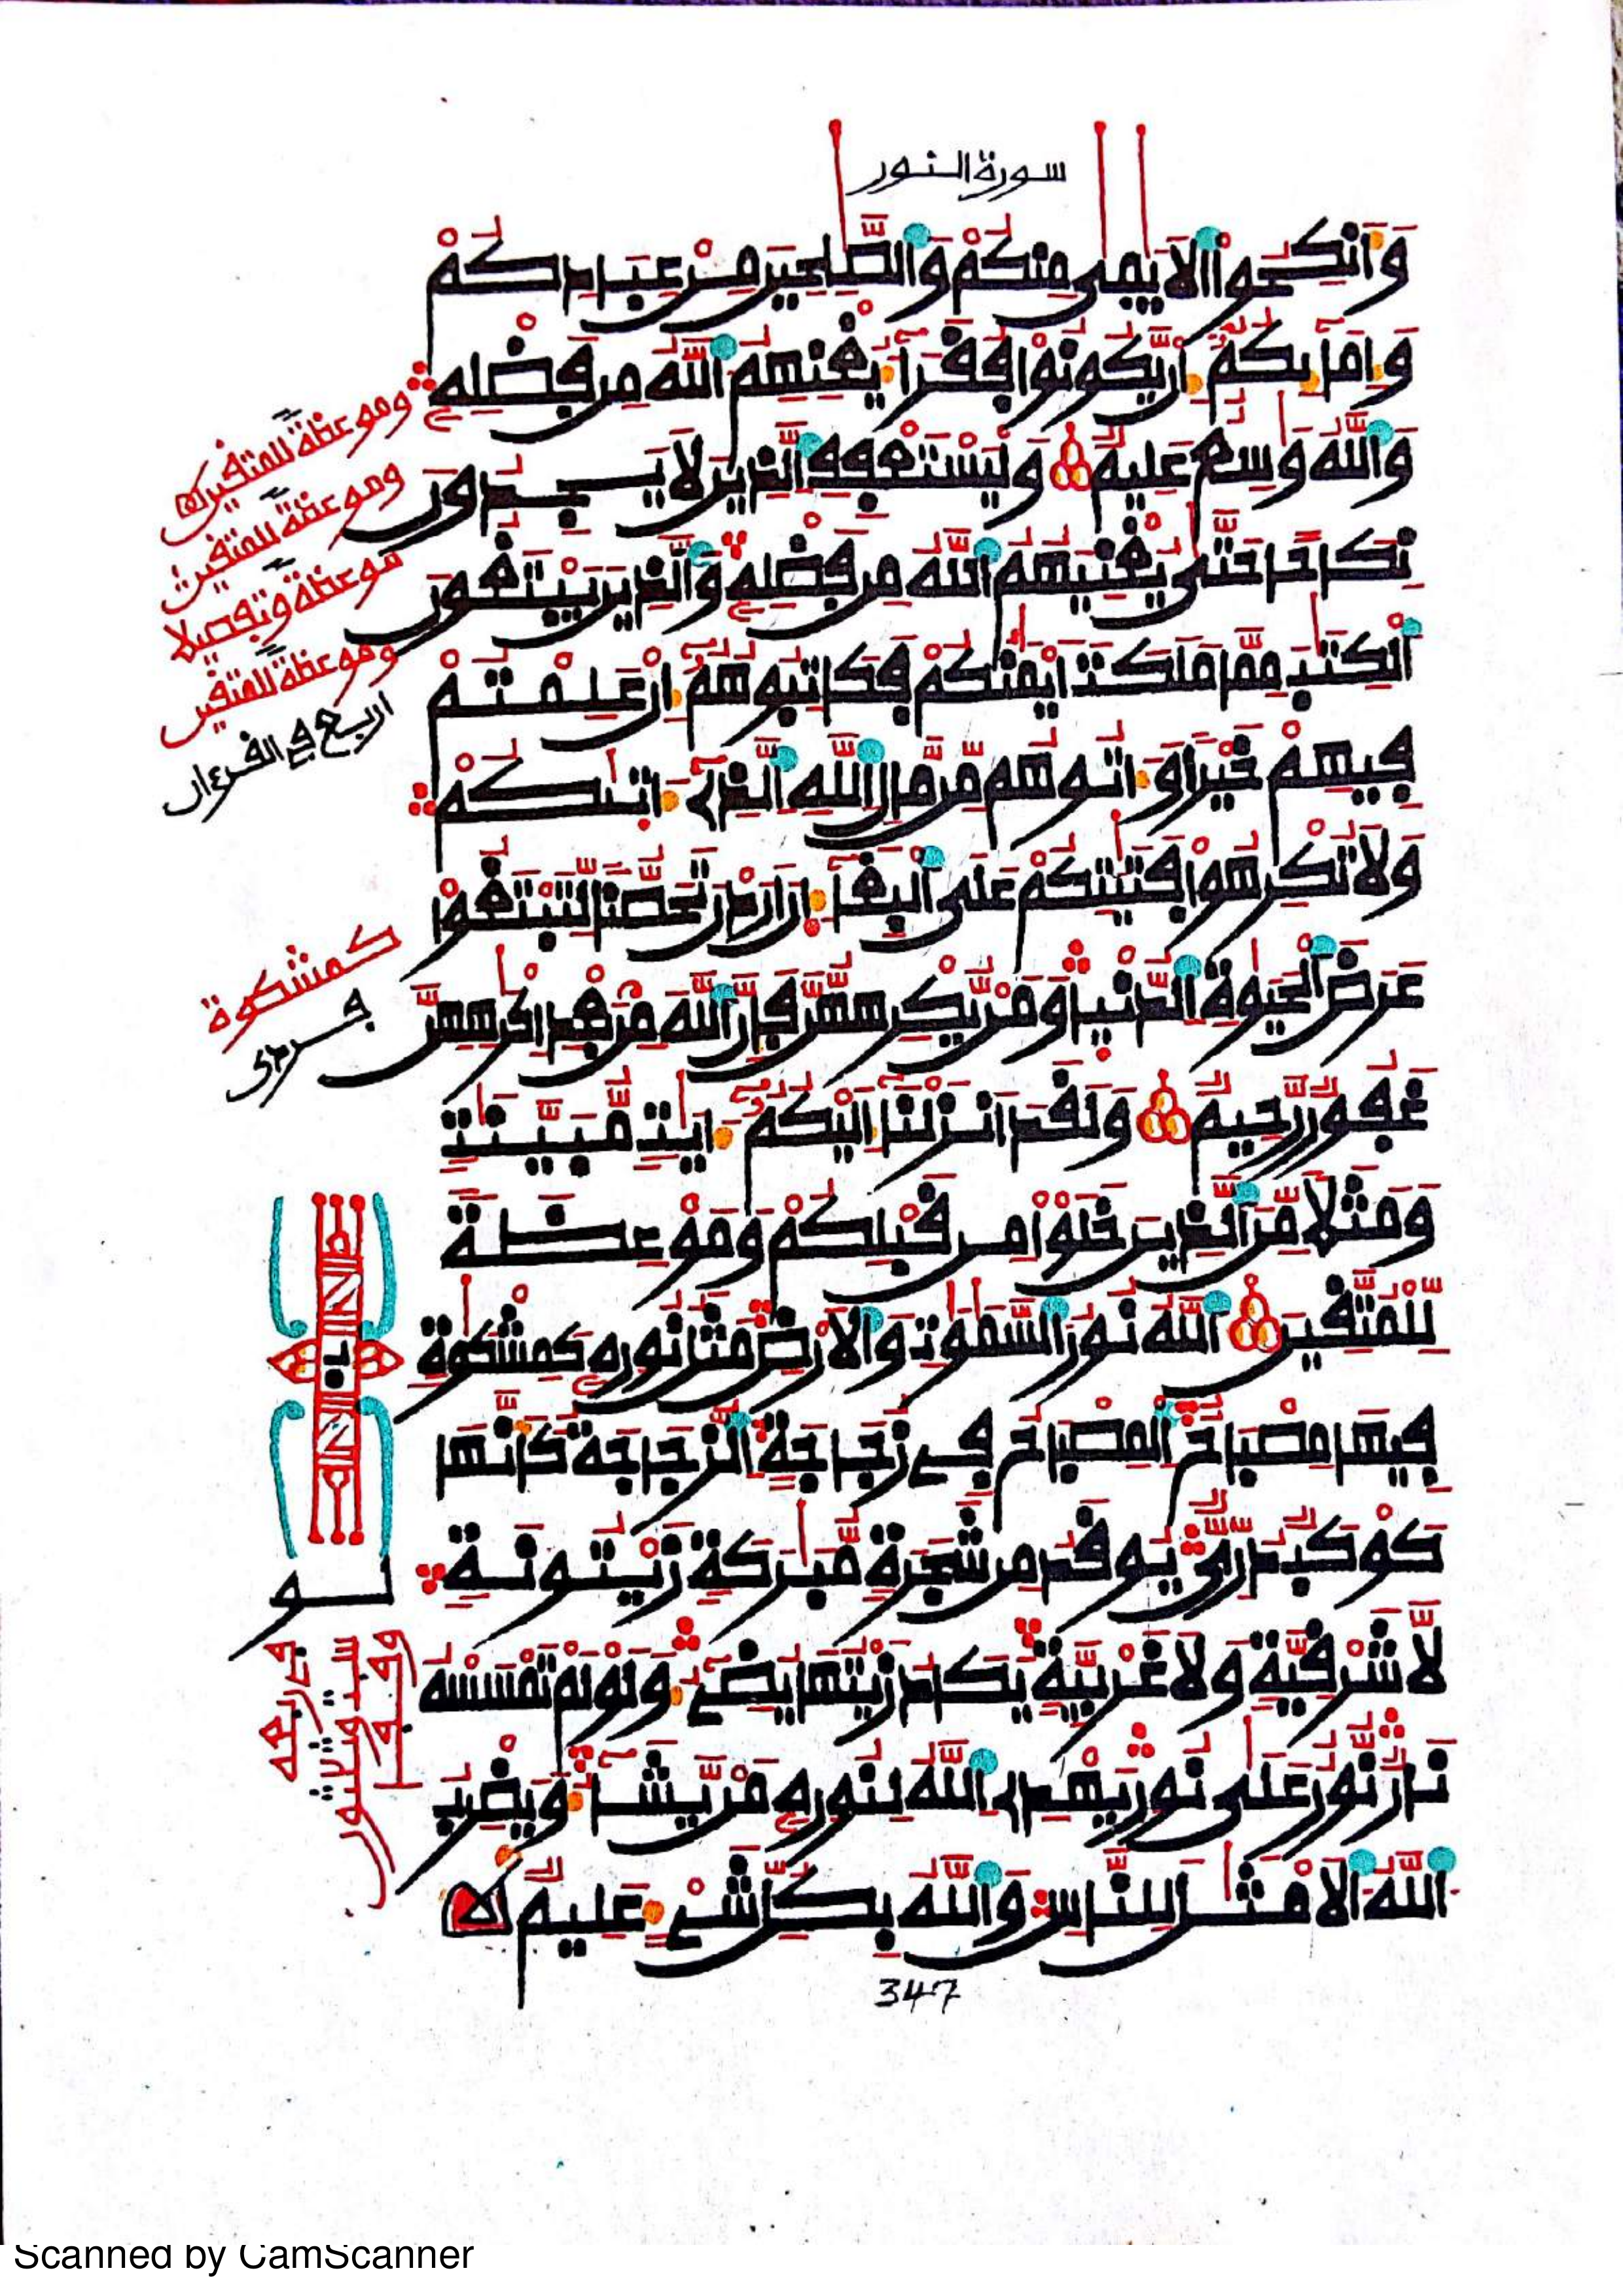 سورة النور
وَأَنكِحُوا۟ الَايَٰمَىٰ مِنكُمْ وَالصَّٰلِحِينَ مِنْ عِبَادِكُمْ
وَإِمَآئِكُمُۥٓ إِن يَّكُونُوا۟ فُقَرَآءَ يُغْنِهِمُ اللَّهُ مِن فَضْلِهِۦ
وَاللَّهُ وَٰسِعٌ عَلِيمٌ وَلْيَسْتَعْفِفِ الَّذِينَ لَا يَجِدُونَ
نِكَاحًا حَتَّىٰ يُغْنِيَهُمُ اللَّهُ مِن فَضْلِهِۦ وَالَّذِينَ يَبْتَغُونَ
الْكِتَٰبَ مِمَّا مَلَكَتَ ايْمَٰنُكُمْ فَكَاتِبُوهُمُۥٓ إِنْ عَلِمْتُمْ
فِيهِمْ خَيْرًا وَءَاتُوهُم مِّن مَّالِ اللَّهِ الَّذِىٓ ءَاتَىٰكُمْ
وَلَا تُكْرِهُوا۟ فَتَيَٰتِكُمْ عَلَى الْبِغَآءِ انَ ارَدْنَ تَحَصُّنًا لِّتَبْتَغُوا۟
عَرَضَ الْحَيَوٰةِ الدُّنْيَا وَمَنْ يُّكْرِههُّنَّ فَإِنَّ اللَّهَ مِنۢ بَعْدِ إِكْرَٰهِهِنَّ
غَفُورٌ رَّحِيمٌ وَلَقَدَ انزَلْنَآ إِلَيْكُمُۥٓ ءَايَٰتٍ مُّبَيَّنَٰتٍ
وَمَثَلًا مِّنَ الَّذِينَ خَلَوْا۟ مِن قَبْلِكُمْ وَمَوْعِظَةً
لِّلْمُتَّقِينَ اللَّهُ نُورُ السَّمَٰوَٰتِ وَالَارْضِ مَثَلُ نُورِهِۦ كَمِشْكَوٰةٍ
فِيهَا مِصْبَاحٌ الْمِصْبَاحُ فِى زُجَاجَةٍ الزُّجَاجَةُ كَأَنَّهَا
كَوْكَبٌ دُرِّىٌّ يُوقَدُ مِن شَجَرَةٍ مُّبَٰرَكَةٍ زَيْتُونَةٍ
لَّا شَرْقِيَّةٍ وَلَا غَرْبِيَّةٍ يَكَادُ زَيْتُهَا يُضِىٓءُ وَلَوْ لَمْ تَمْسَسْهُ
نَارٌ نُّورٌ عَلَىٰ نُورٍ يَهْدِى اللَّهُ لِنُورِهِۦ مَنْ يَّشَآءُ وَيَضْرِبُ
اللَّهُ الَامْثَٰلَ لِلنَّاسِ وَاللَّهُ بِكُلِّ شَىْءٍ عَلِيمٌ
347
وموعظة للمتقين
وموعظة للمتقين
موعظة وتفصيلا
وموعظة للمتقين
اربع في القرءان
كمشكوة
فردى
Scanned by CamScanner